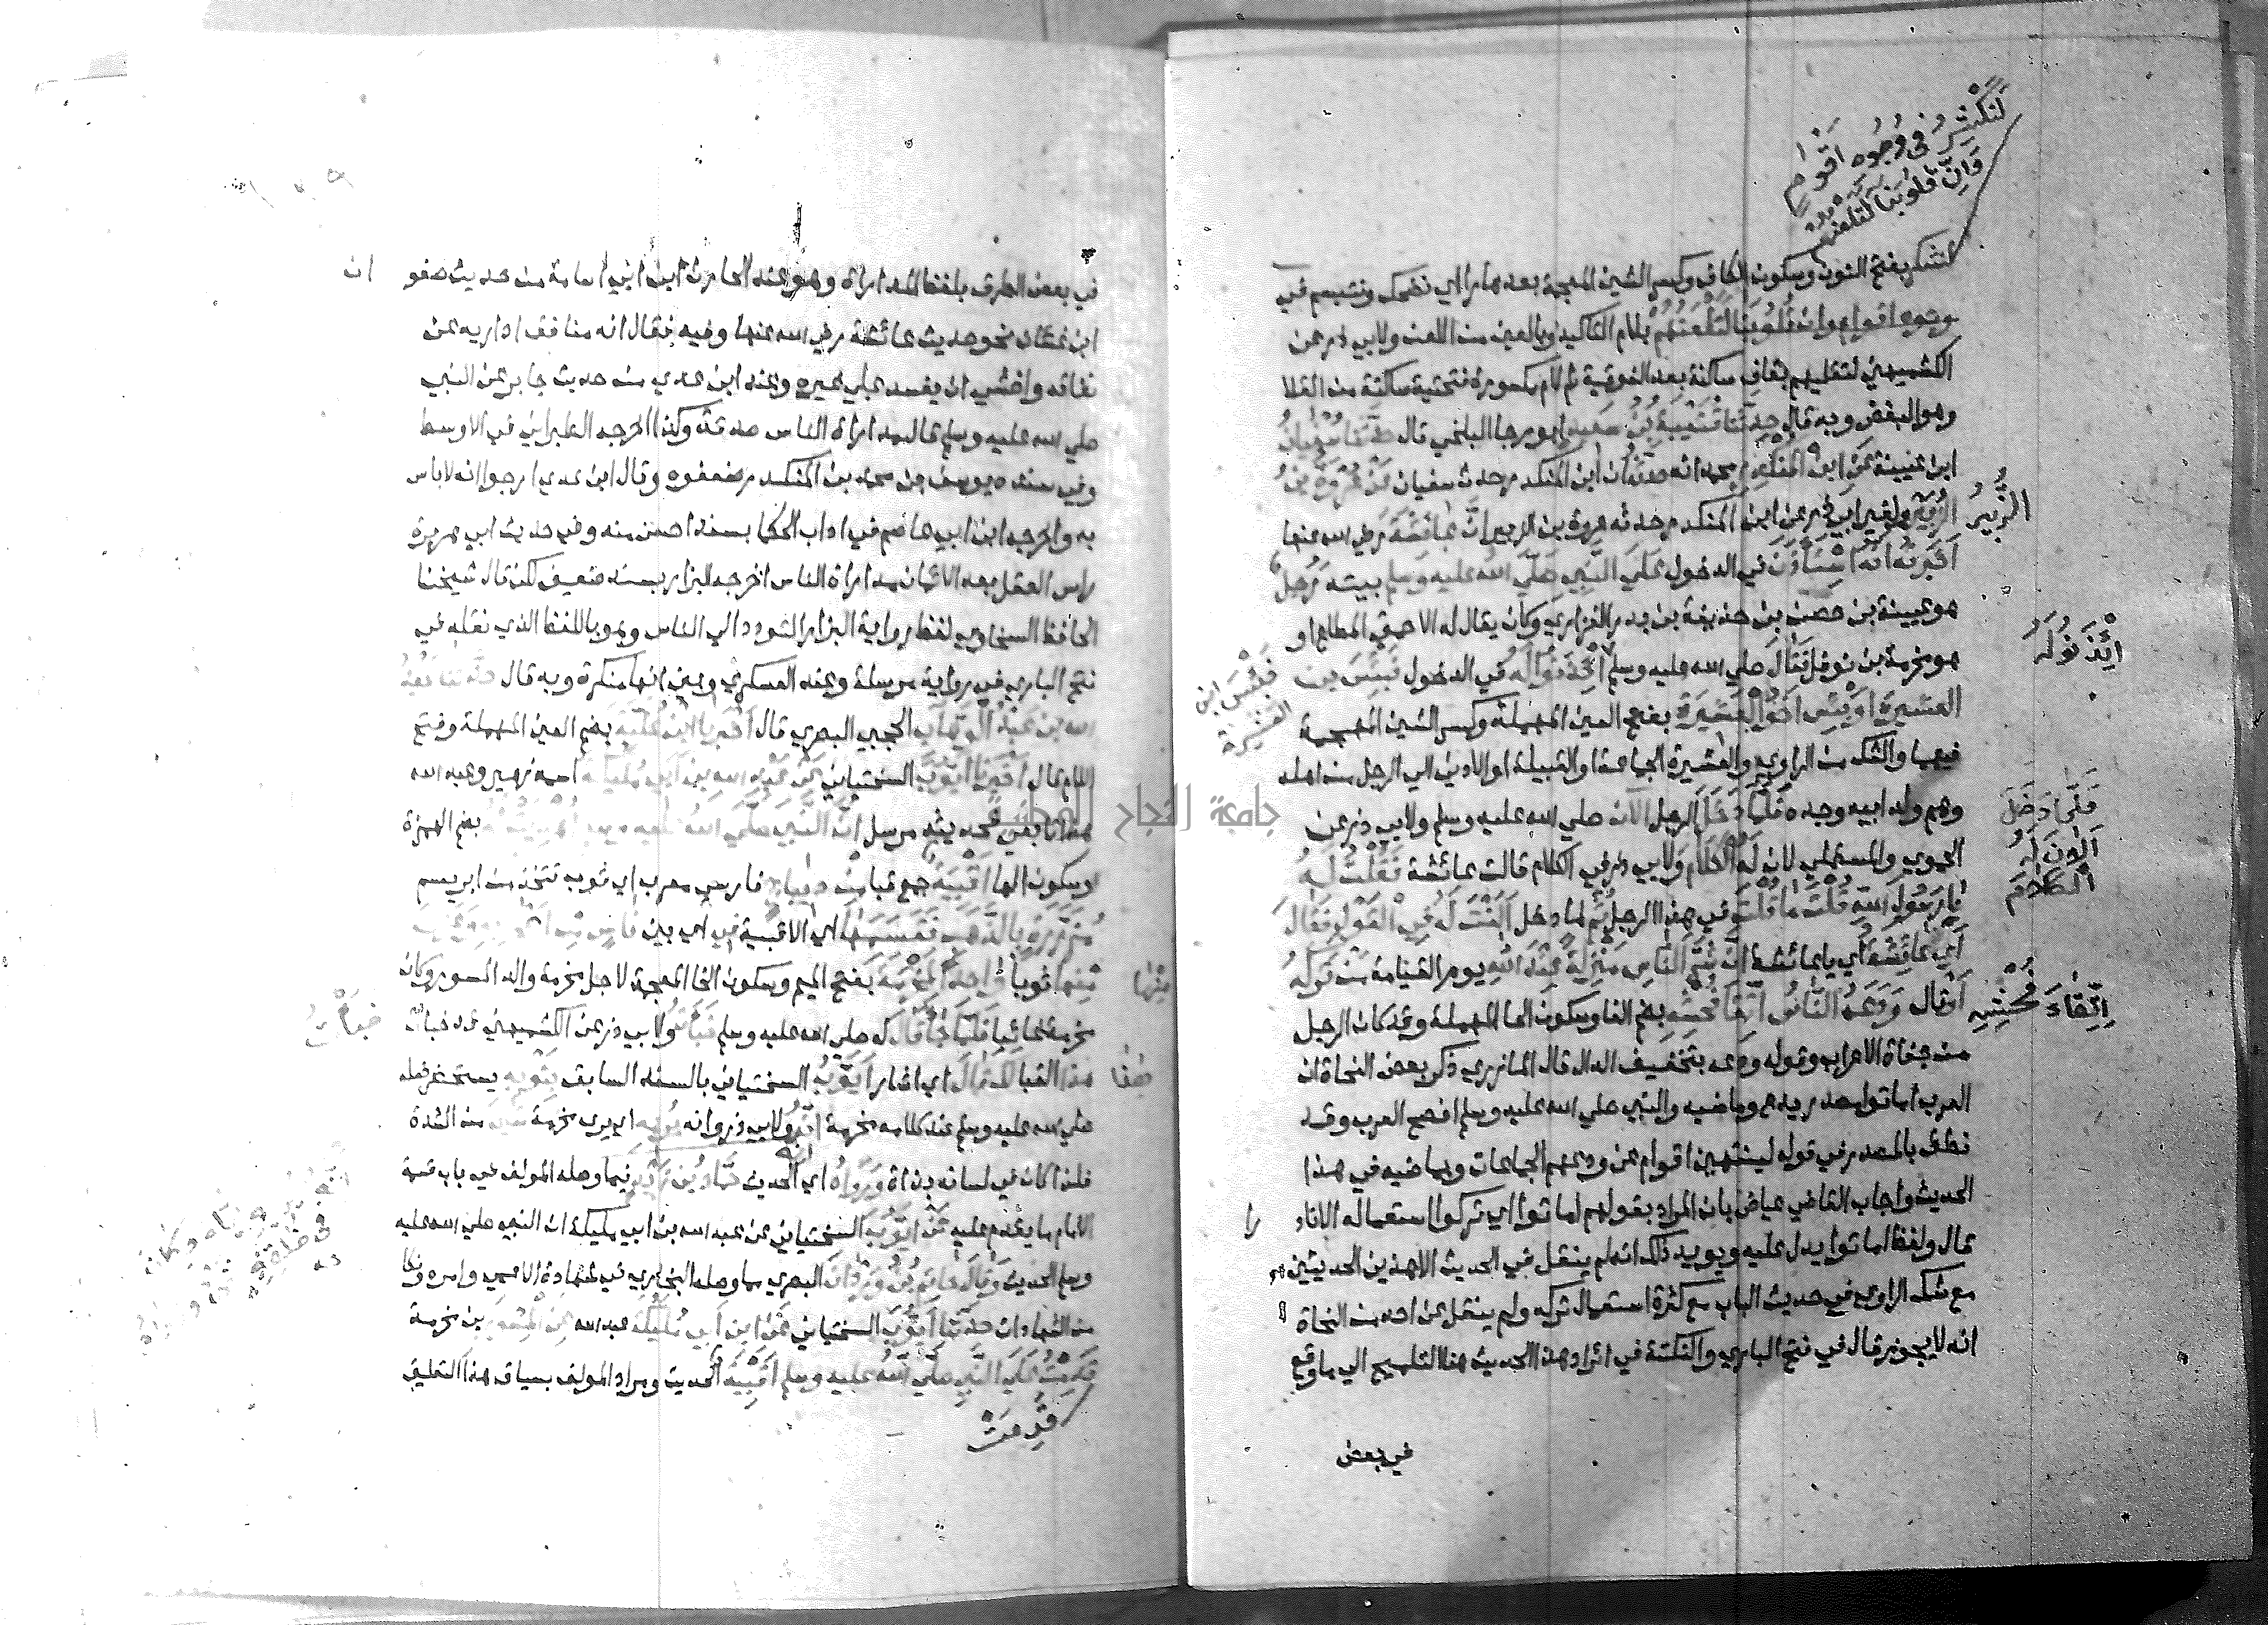 لنكشر في وجوه اقوام
وان قلوبنا لتلعنهم
لنكشر بفتح النون وسكون الكاف وكسر الشين المعجمة بعدها را اي نضحك ونتبسم في
وجوه اقوام وان قلوبنا لتلعنهم بلام التاكيد وبالعين من اللعن ولابي ذر عن
الكشميهني لتقليهم بقاف ساكنة بعد الفوقية ثم لام مكسورة فتحتية ساكنة من القلا
وهو البغض وبه قال حدثنا قتيبة بن سعيد ابو رجا البلخي قال حدثنا سفيان
ابن عيينة عن ابن المنكدر محمد انه حدثه ان ابن المنكدر حدث سفيان عن عروة بن
الزبير ولغير ابي ذر عن ابن المنكدر حدثه عروة بن الزبير ان عائشة رضي الله عنها
الزبير
اخبرته انه استاذن في الدخول على النبي صلي الله عليه وسلم بيته رجل
هو عيينة بن حصن بن حذيفة بن بدر الفزاري وكان يقال له الاحمق المطاع او
هو مخرمة بن نوفل فقال صلي الله عليه وسلم ائذنوا له في الدخول فبئس بن
ائذنوا له
فبئس ابن
العشيرة
العشيرة او بئس اخو العشيرة بفتح العين المهملة وكسر الشين المعجمة
فيهما والشك من الراوي والعشيرة الجماعة او القبيلة او الادني الي الرجل من اهله
وهم ولد ابيه وجده فلما دخل الرجل الان صلي الله عليه وسلم ولابي ذر عن
فلما دخل
الان له
الكلام
الحموي والمستملي لان له الكلام ولابي ذر في الكلام قالت عائشة فقلت له
يا رسول الله قلت ما قلت في هذا الرجل ثم لما دخل النت له في القول فقال
اي عائشة اي يا عائشة ان شر الناس منزلة عند الله يوم القيامة من تركه
او قال ودعه الناس اتقا فحشه بضم الفا وسكون الحا المهملة وقد كان الرجل
اتقاء فحشه
من جفاة الاعراب وقوله ودعه بتخفيف الدال قال المازري ذكر بعض النحاة ان
العرب اماتوا مصدر يدع وماضيه والنبي صلي الله عليه وسلم افصح العرب وقد
نطق بالمصدر في قوله لينتهين اقوام عن ودعهم الجماعات وبماضيه في هذا
الحديث واجاب القاضي عياض بان المراد بقولهم اماتوا اي تركوا استعماله الا نادرا
قال ولفظ اماتوا يدل عليه ويويد ذلك انه لم ينقل في الحديث الا هذين الحديثين
مع شك الراوي في حديث الباب مع كثرة استعمال تركه ولم ينقل عن احد من النحاة
انه لا يجوز قال في فتح الباري والنكتة في ايراد هذا الحديث هنا التلميح الي ما وقع
في بعض
في بعض الطرق بلفظ المداراة وهو عند الحارث ابن ابي اسامة من حديث صفوان
ابن عسال نحو حديث عائشة رضي الله عنها وفيه فقال انه منافق اداريه عن
نفاقه واخشي ان يفسد علي غيره وعند ابن عدي من حديث جابر عن النبي
صلي الله عليه وسلم قال مداراة الناس صدقة وكذا اخرجه الطبراني في الاوسط
وفي سنده يوسف بن محمد بن المنكدر ضعفوه وقال ابن عدي ارجوا انه لا باس
به واخرجه ابن ابي عاصم في اداب الحكما بسند احسن منه وفي حديث ابي هريرة
راس العقل بعد الايمان مداراة الناس اخرجه البزار بسند ضعيف لكن قال شيخنا
الحافظ السخاوي لفظ رواية البزار التودد الي الناس وهو باللفظ الذي نقله في
فتح الباري في رواية مرسلة وعند العسكري وغيره انها منكرة وبه قال حدثنا عبد
الله بن عبد الوهاب الحجبي البصري قال اخبرنا ابن علية بضم العين المهملة وفتح
اللام قال اخبرنا ايوب السختياني عن عبد الله بن ابي مليكة اسمه زهير وعبد الله
هذا تابعي فحديثه مرسل ان النبي صلي الله عليه وسلم اهديت له بضم الهمزة
وسكون الها اقبية جمع قبا من ديباج فارسي معرب اي ثوب تتخذ من ابريسم
مزررة بالذهب فقسمها اي الاقبية في اي بين ناس من اصحابه وعزل
منها ثوبا واحدا لمخرمة بفتح الميم وسكون الخا المعجمة لاجل مخرمة والد المسور وكان
منها
مخرمة غائبا فلما جا قال له صلي الله عليه وسلم خبات ولابي ذر عن الكشميهني قد خبات
خبات
هذا القبا لك قال اي اشار ايوب السختياني بالسند السابق بثوبه يستحضر فعله
هذا
صلي الله عليه وسلم عند كلامه مخرمة انه ولابي ذر وانه يريه اي يري مخرمة من الشدة
فلذا كان في لسانه بذاة ورواه اي الحديث حماد بن زيد فيما وصله المولف في باب قسمة
الامام ما يقدم عليه عن ايوب السختياني عن عبد الله بن ابي مليكة ان النبي صلي الله عليه
وسلم الحديث وقال حاتم بن وردان البصري مما وصله البخاري في شهادة الاعمي وامره
من الشهادات حدثنا ايوب السختياني عن ابن ابي مليكة عبد الله عن المسور بن مخرمة
قدمت علي النبي صلي الله عليه وسلم اقبية الحديث ومراد المولف بسياق هذا التعليق
قدمت
جامعة النجاح الوطنية